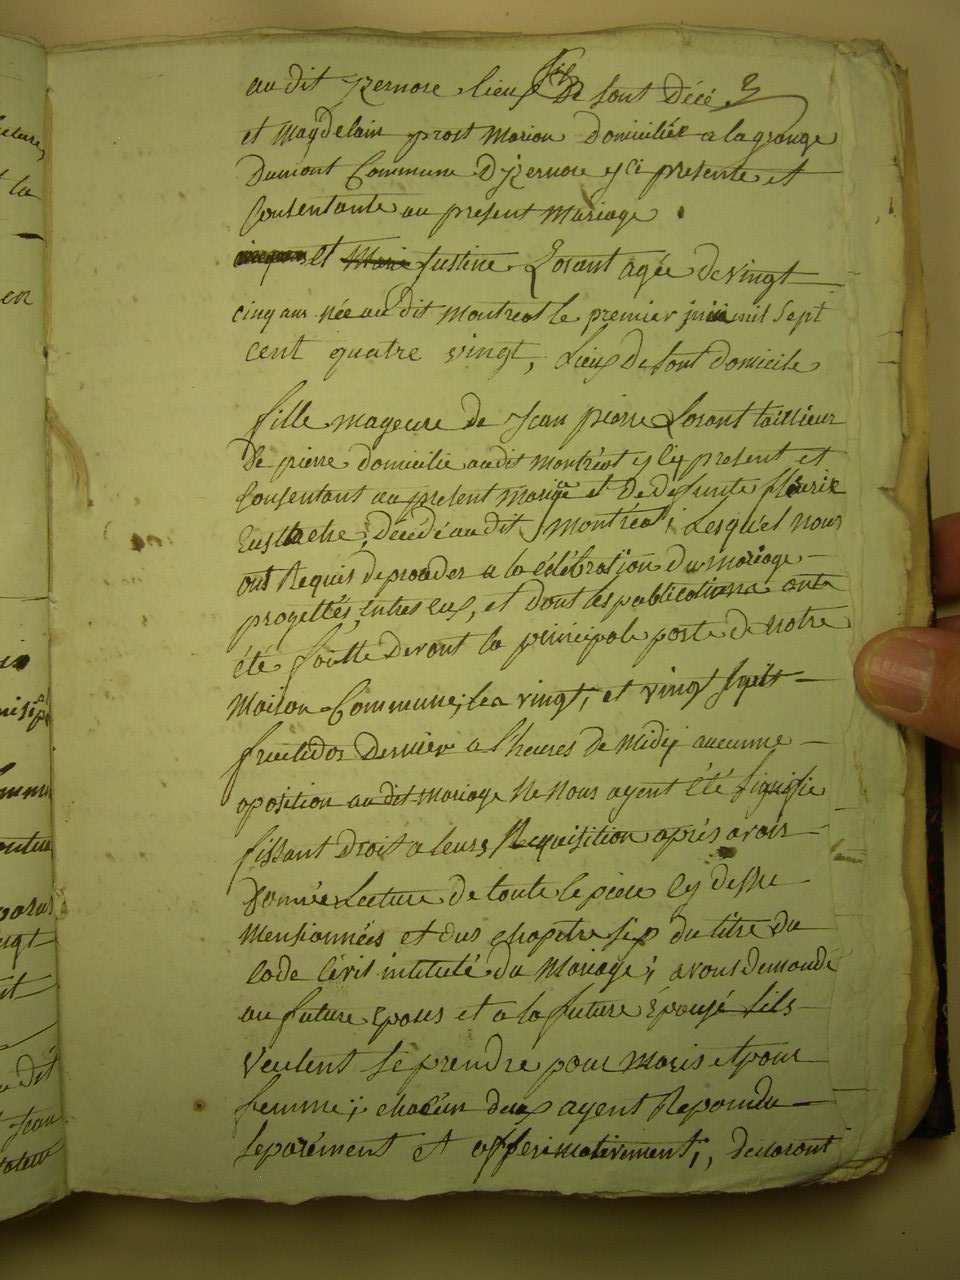 au dit yzernore lieux de sont Décé
et Magdelain prost Marion Domiciliée a la grange
Dumont Commune D'yzernore yci presente et
Consentante au present Mariage
et Marie Justine Losant agée de vingt
cinq ans née au dit Montreal le premier juin mil Sept
cent quatre vingt, Lieux de sont domicile
fille mageure de Jean pierre Losant taillieur
De pierre domicilie au dit montréal y ly present et
Consentant au present Mariage et De defunte fleurie
Eustache, Décédé au dit Montréal; Lesquel nous
ont Requis de proceder a la célébration du mariage
progettés, entres eux, et dont les publications onts
été faitte devant la principale porte de notre
Maison Commune, les vingt, et vingt Sept
fructidor dernier a l'heures de Midy aucunne
oposition au dit mariage ne nous ayent été Signifie
fissant Droit a leurs Requisition aprés avoir
Donnée Lecture de toute le piece cy desu
Mensionnées et dus chapitre six du titre du
Code Civil intitulé du Mariage; avons demandé
au future Epous et a la future Epouse s'ils
veulent se prendre pour maris et pour
femme; chacun deux ayent Repondu
Separément et affermativement; declaront